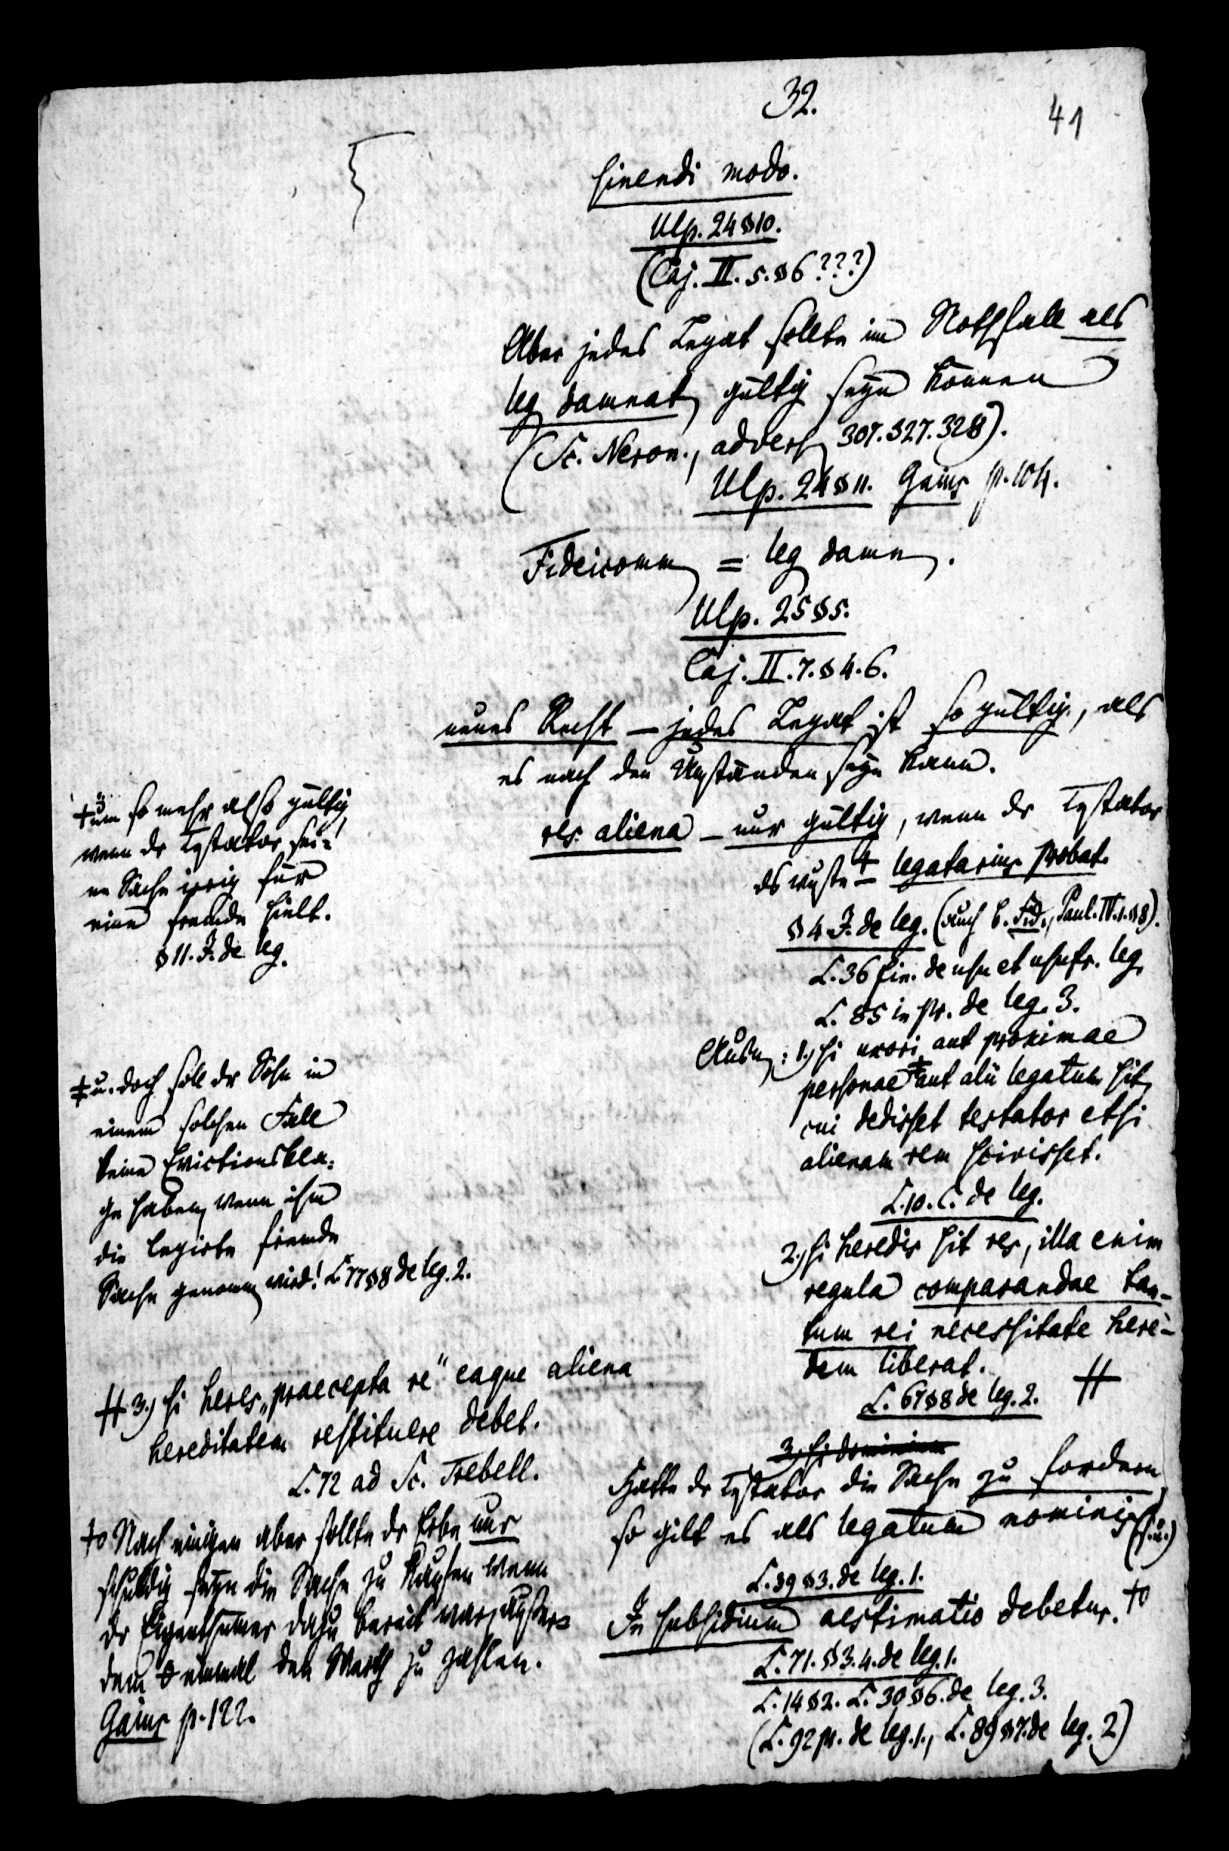 32.
41
sinendi modo.
Ulp. 24 § 10.
(Caj. II. 5. § 6 ???)
Aber jedes Legat sollte im Nothfall als
leg damnat gültig seyn können
(Sc. Neron., advers 307. 327. 328).
Ulp. 24 § 11. Gaius p. 104.
Fideicomm = leg damn.
Ulp. 25 § 5.
Caj. II. 7. § 4. 6.
neues Recht – jedes Legat ist so gültig, als
es nach den Umständen seyn kann.
res aliena – nur gültig, wenn dr Testator
ds wuste + – legatarius probat.
§ 4. J. de leg. (auch b. Fid., Paul. IV. 1. § 8).
L. 36 fin. de usu et usufr. leg.
L. 85 in pr. de leg. 3.
Ausn: 1.) si uxori aut proximae
personae ‡ aut alii legatum sit,
cui dedisset testator etsi
alienam rem scivisset.
L. 10. C. de leg.
2.) si heredis sit res, illa enim
regula comparandae tan-
tum rei necessitate here-
dem liberat.
L. 67 § 8 de leg. 2. #
3.) si dominium
Hatte dr Testator die Sache zu fordern
so gilt es als legatum nominis (s. u.)
L. 39 § 3. de leg. 1.
In subsidium aestimatio debetur. +o
L. 71. § 3. 4. de leg. 1.
L. 14 § 2. L. 30 § 6. de leg. 3.
(L. 92 pr. de leg. 1., L. 89 § 7. de leg. 2)
+ um so mehr also gültig
wenn dr Testator sei-
ne Sache irrig für
eine fremde hielt.
§ 11. J. de leg.
‡ u. doch soll dr Sohn in
einem solchen Fall
keine Evictionskla-
ge haben, wenn ihm
die legirte fremde
Sache genomm wird! L 77 § 8 de leg. 2.
# 3.) si heres „praecepta re" eaque aliena
hereditatem restituere debet.
L. 72 ad Sc. Trebell.
+o Nach einigen aber sollte dr Erbe nur
schuldig seyn die Sache zu kaufen wenn
dr Eigenthümer dazu bereit war, außer-
dem einmal den Werth zu zahlen.
Gaius p. 122.